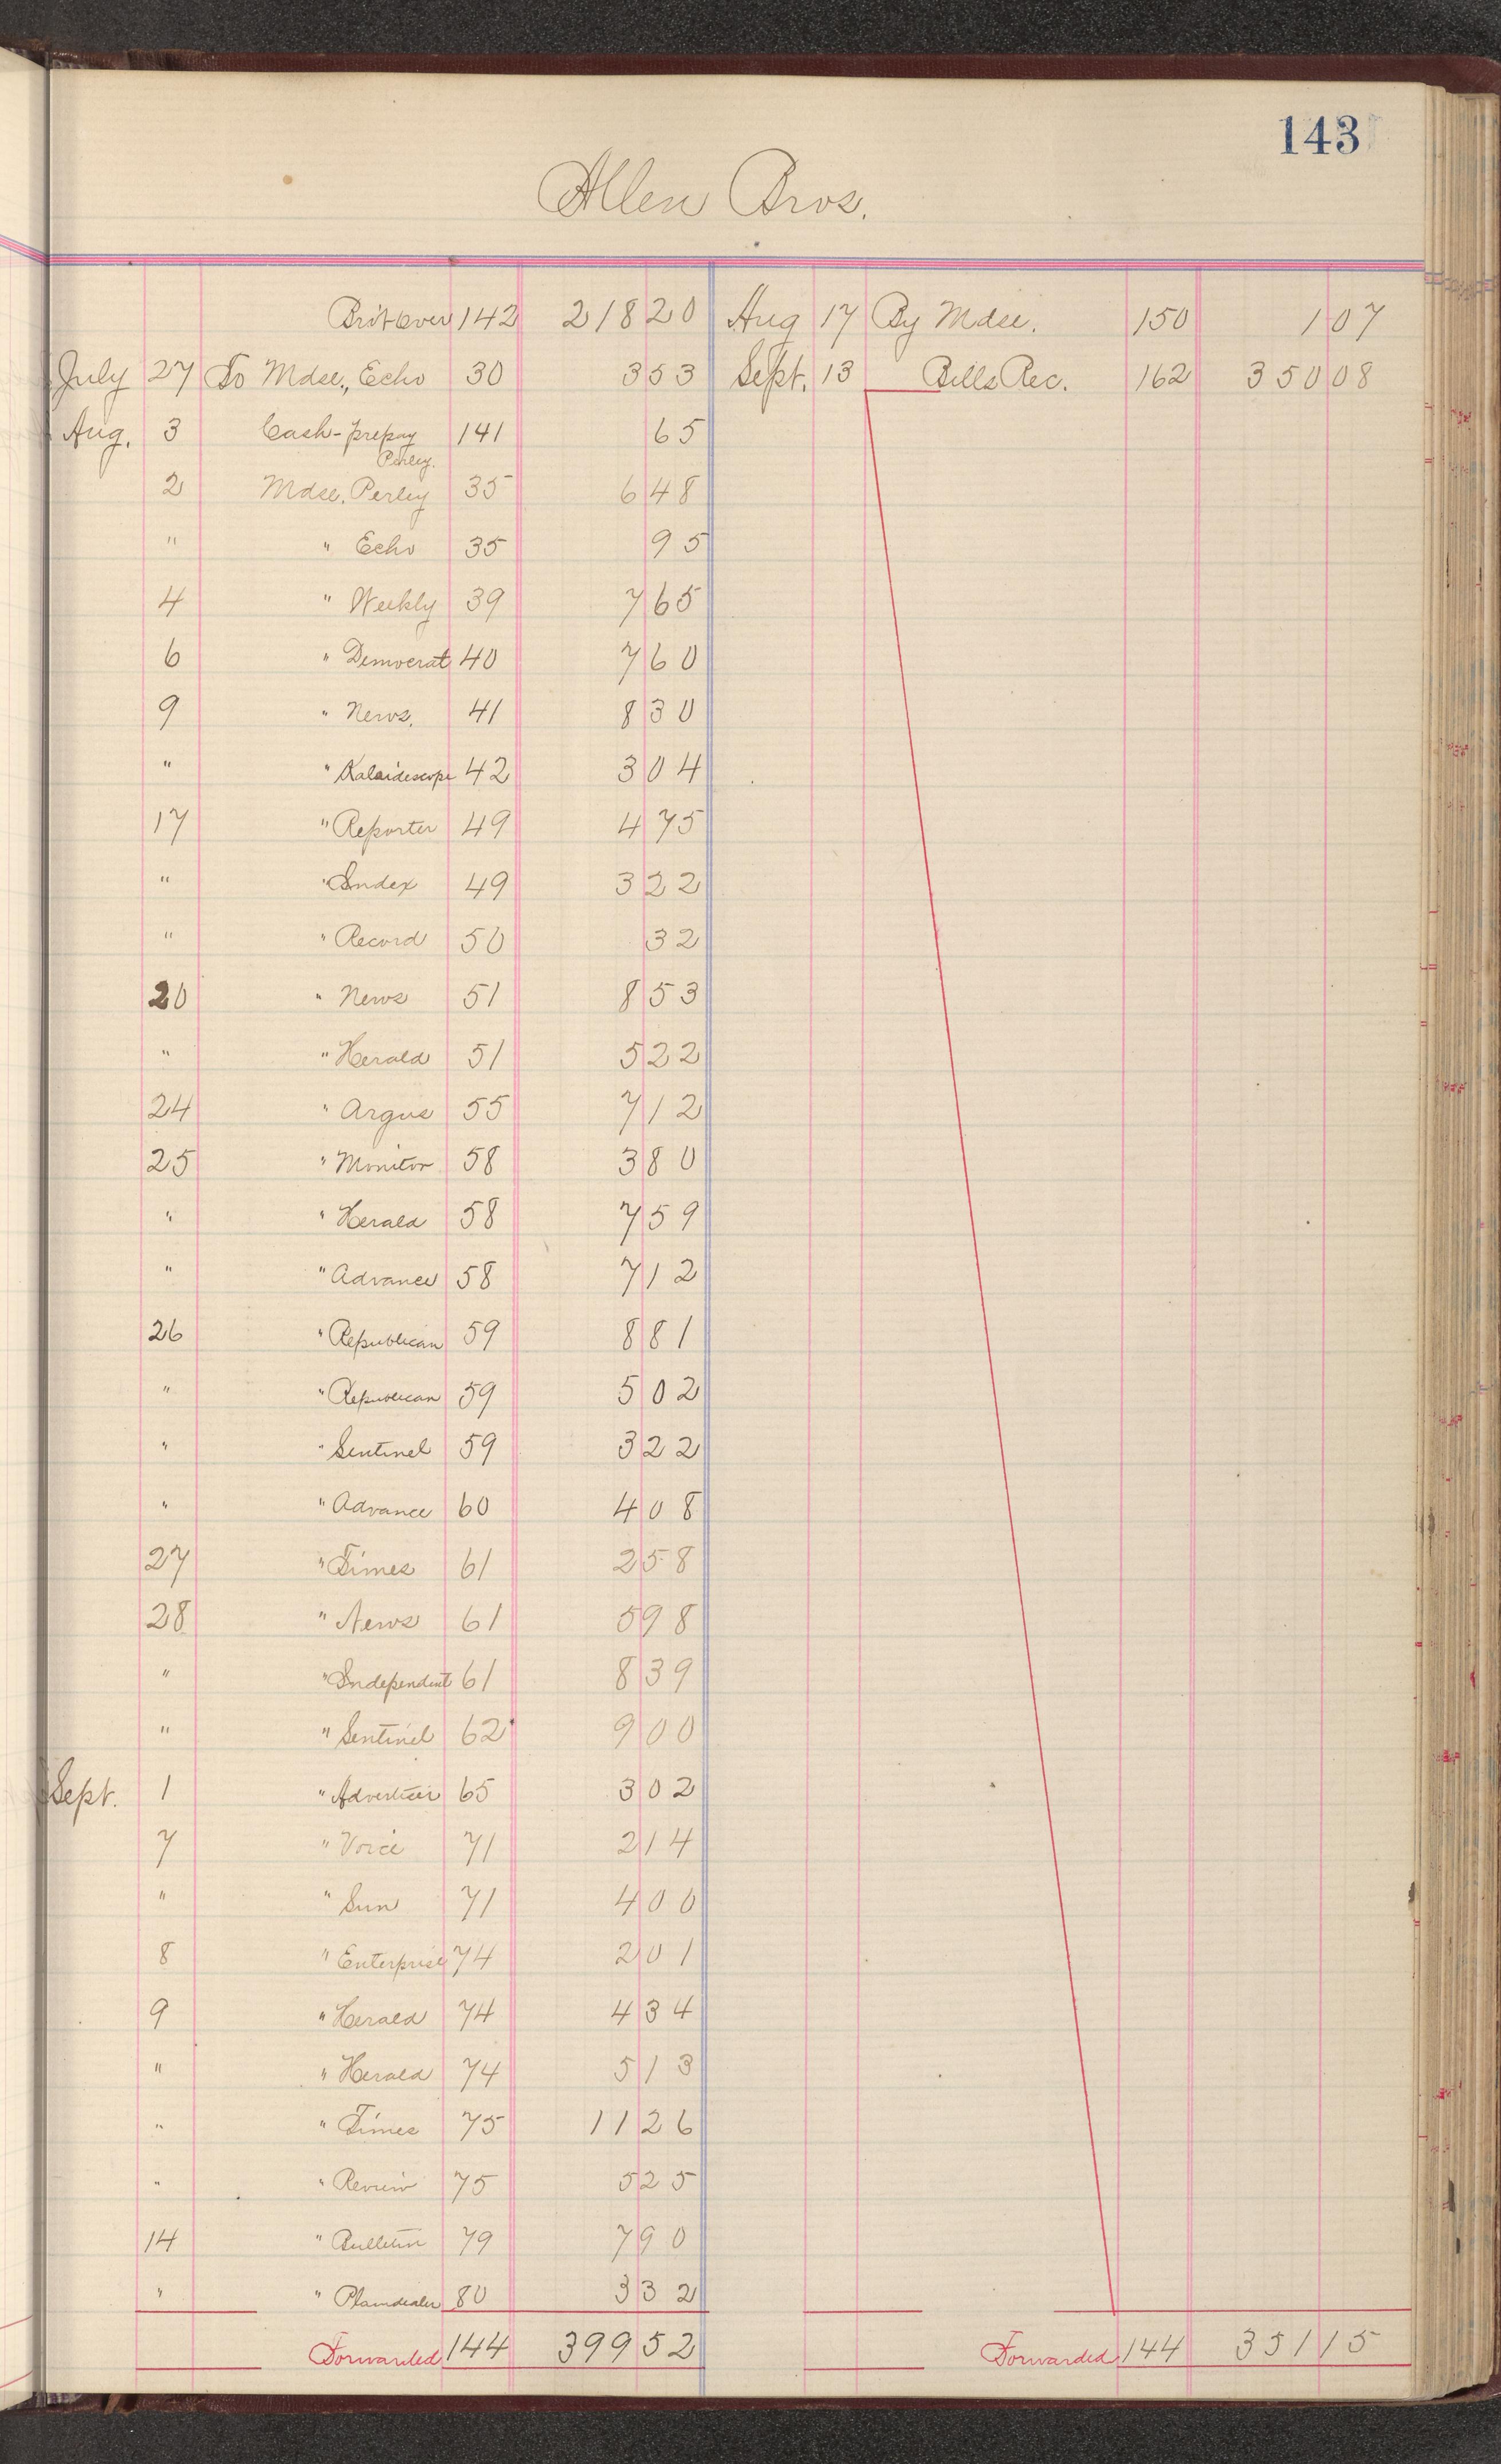 143
Allen Bros.
Brot over 142 218 20 Aug 17 By Mdse. 150 1 07
July 27 To Mdse., Echo 30 3 53 Sept. 13 Bills Rec. 162 350 08
Aug. 3 Cash - prepay 141 65
Perley.
2 Mdse. Perley 35 6 48
" " Echo 35 95
4 " Weekly 39 7 65
6 " Democrat 40 7 60
9 " News. 41 8 30
" " Kalaidescope 42 3 04
17 " Reporter 49 4 75
" " Index 49 3 22
" " Record 50 32
20 " News 51 8 53
" " Herald 51 5 22
24 " Argus 55 7 12
25 " Monitor 58 3 80
" " Herald 58 7 59
" " Advance 58 7 12
26 " Republican 59 8 81
" " Republican 59 5 02
" " Sentinel 59 3 22
" " Advance 60 4 08
27 " Times 61 2 58
28 " News 61 5 98
" " Independent 61 8 39
" " Sentinel 62 9 00
Sept. 1 " Advertiser 65 3 02
7 " Voice 71 2 14
" " Sun 71 4 00
8 " Enterprise 74 2 01
9 " Herald 74 4 34
" " Herald 74 5 13
" " Times 75 11 26
" " Review 75 5 25
14 " Bulletin 79 7 90
" " Plaindealer 80 3 32
Forwarded 144 399 52 Forwarded 144 351 15